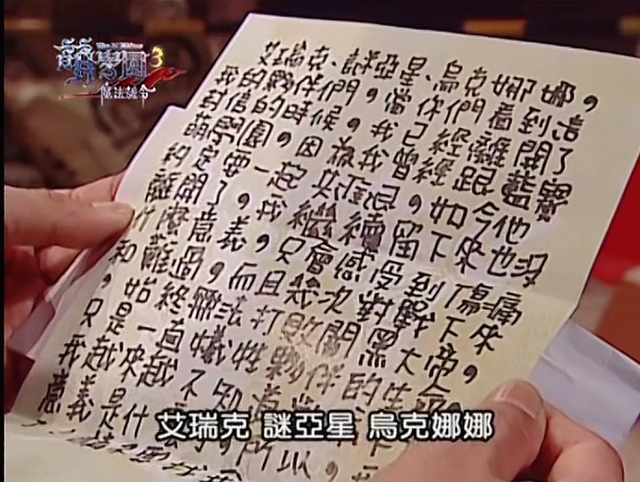 萌學園3
魔法號令
艾瑞克、謎亞星、烏克娜娜,
我的夥伴們。當你們看到這
封信的時候。我已經離開了
萌學園。因為我曾經跟藍寶
約定要一起共進退。如今他
離開了。我繼續留下來也沒
什麼意義,只會感受到傷痛
和難過。而且幾次對戰下來
,始終無法打敗闇黑大帝。
只是一直犧牲夥伴的生命。
我越來越不知道
意義是什 所以,
艾瑞克 謎亞星 烏克娜娜